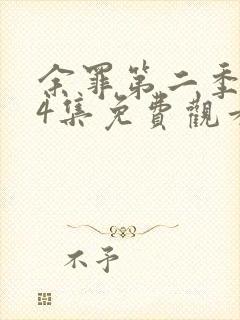 余罪第二季
4集免費觀看
不予